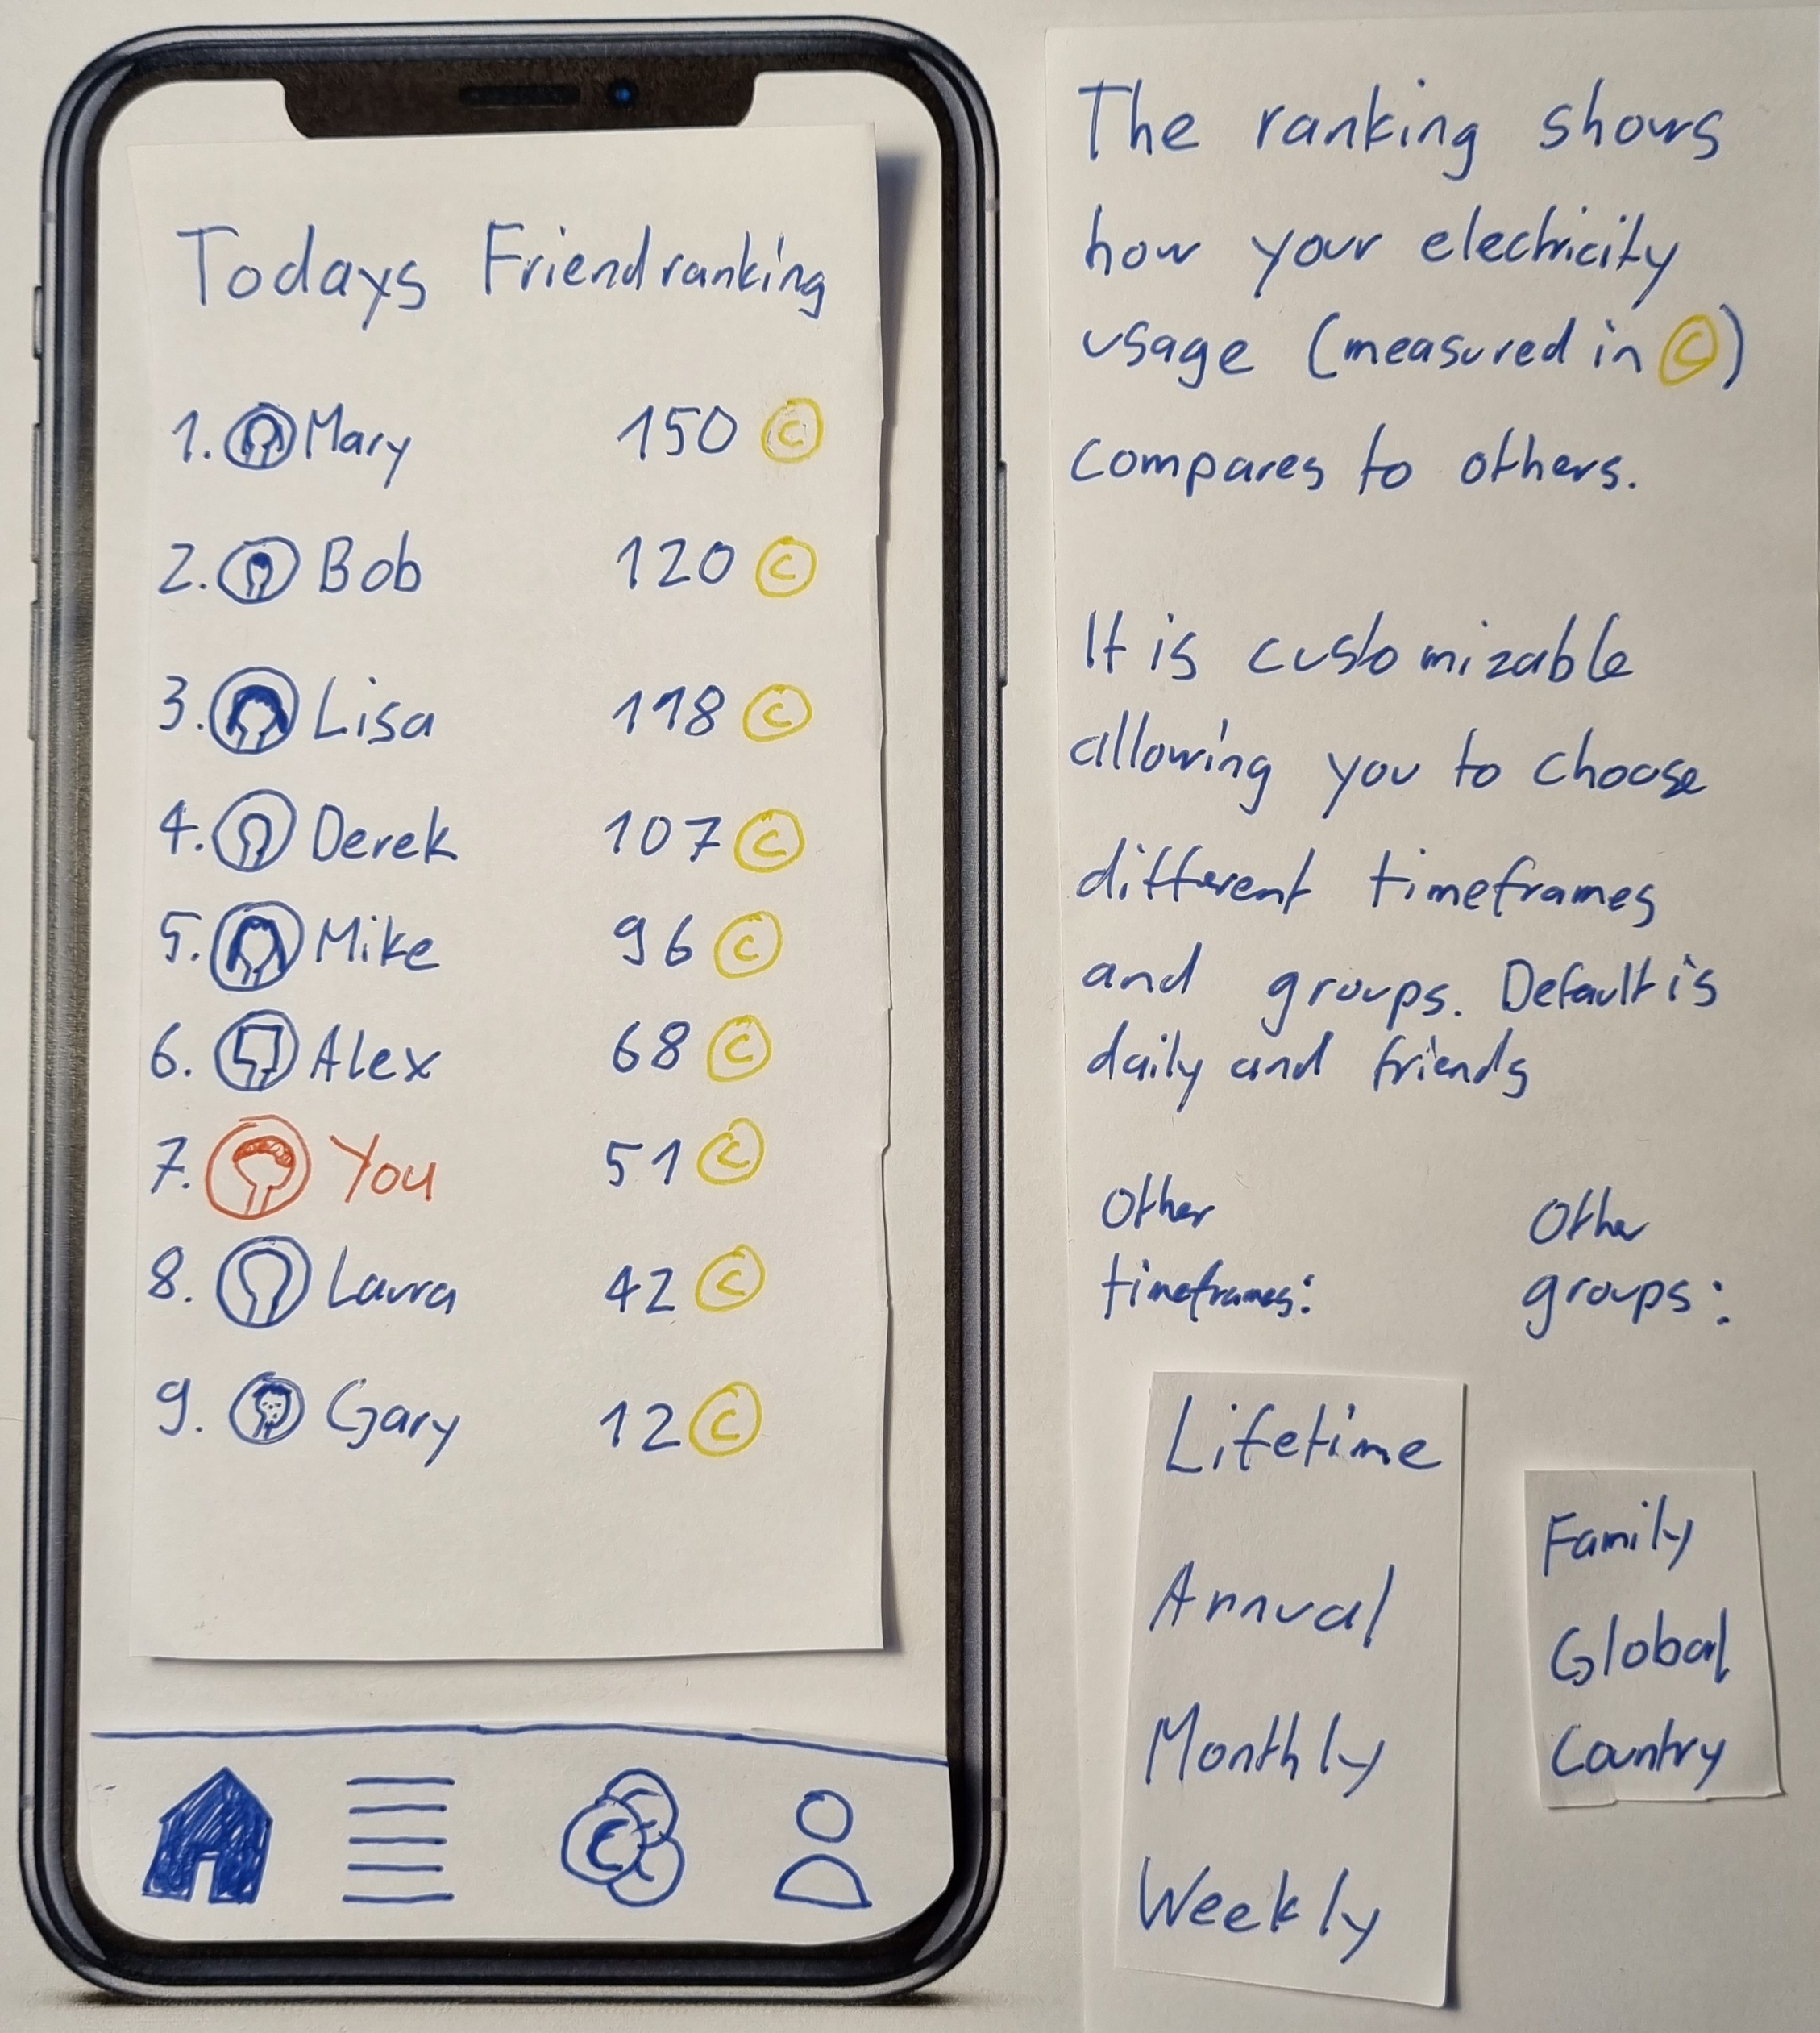 Todays Friendranking
1. Mary 150 C
2. Bob 120 C
3. Lisa 118 C
4. Derek 107 C
5. Mike 96 C
6. Alex 68 C
7. You 51 C
8. Laura 42 C
9. Gary 12 C
C
The ranking shows
how your electricity
usage (measured in C)
compares to others.
It is customizable
allowing you to choose
different timeframes
and groups. Default is
daily and friends
Other
timeframes:
Lifetime
Annual
Monthly
Weekly
Other
groups:
Family
Global
Country